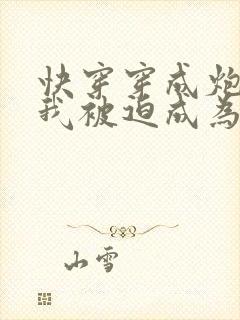 快穿穿成炮
我被迫成為
山雪